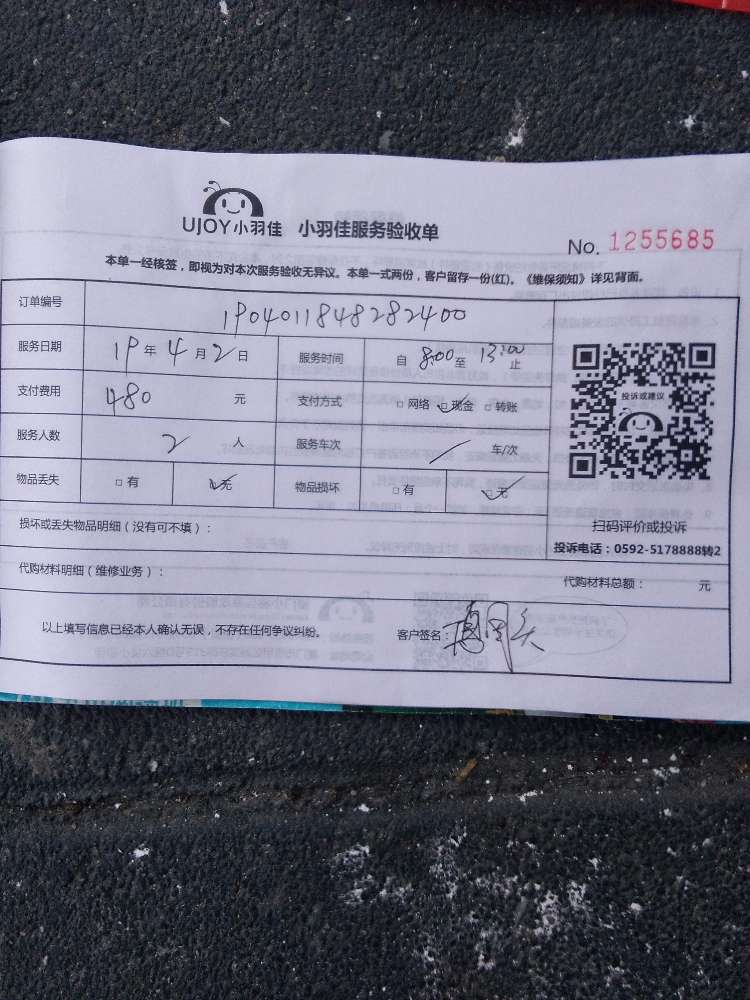 UJOY小羽佳 小羽佳服务验收单
No. 1255685
本单一经核签，即视为对本次服务验收无异议。本单一式两份，客户留存一份(红)。《维保须知》详见背面。
订单编号 1904011848282400
服务日期 19 年 4 月 2 日 服务时间 自 8:00 至 13:00 止
支付费用 480 元 支付方式 □ 网络 □ 现金 □ 转账
服务人数 2 人 服务车次 车/次
物品丢失 □ 有 □ 无 物品损坏 □ 有 □ 无
投诉或建议
扫码评价或投诉
投诉电话：0592-5178888转2
损坏或丢失物品明细（没有可不填）：
代购材料明细（维修业务）： 代购材料总额： 元
以上填写信息已经本人确认无误，不存在任何争议纠纷。 客户签名：